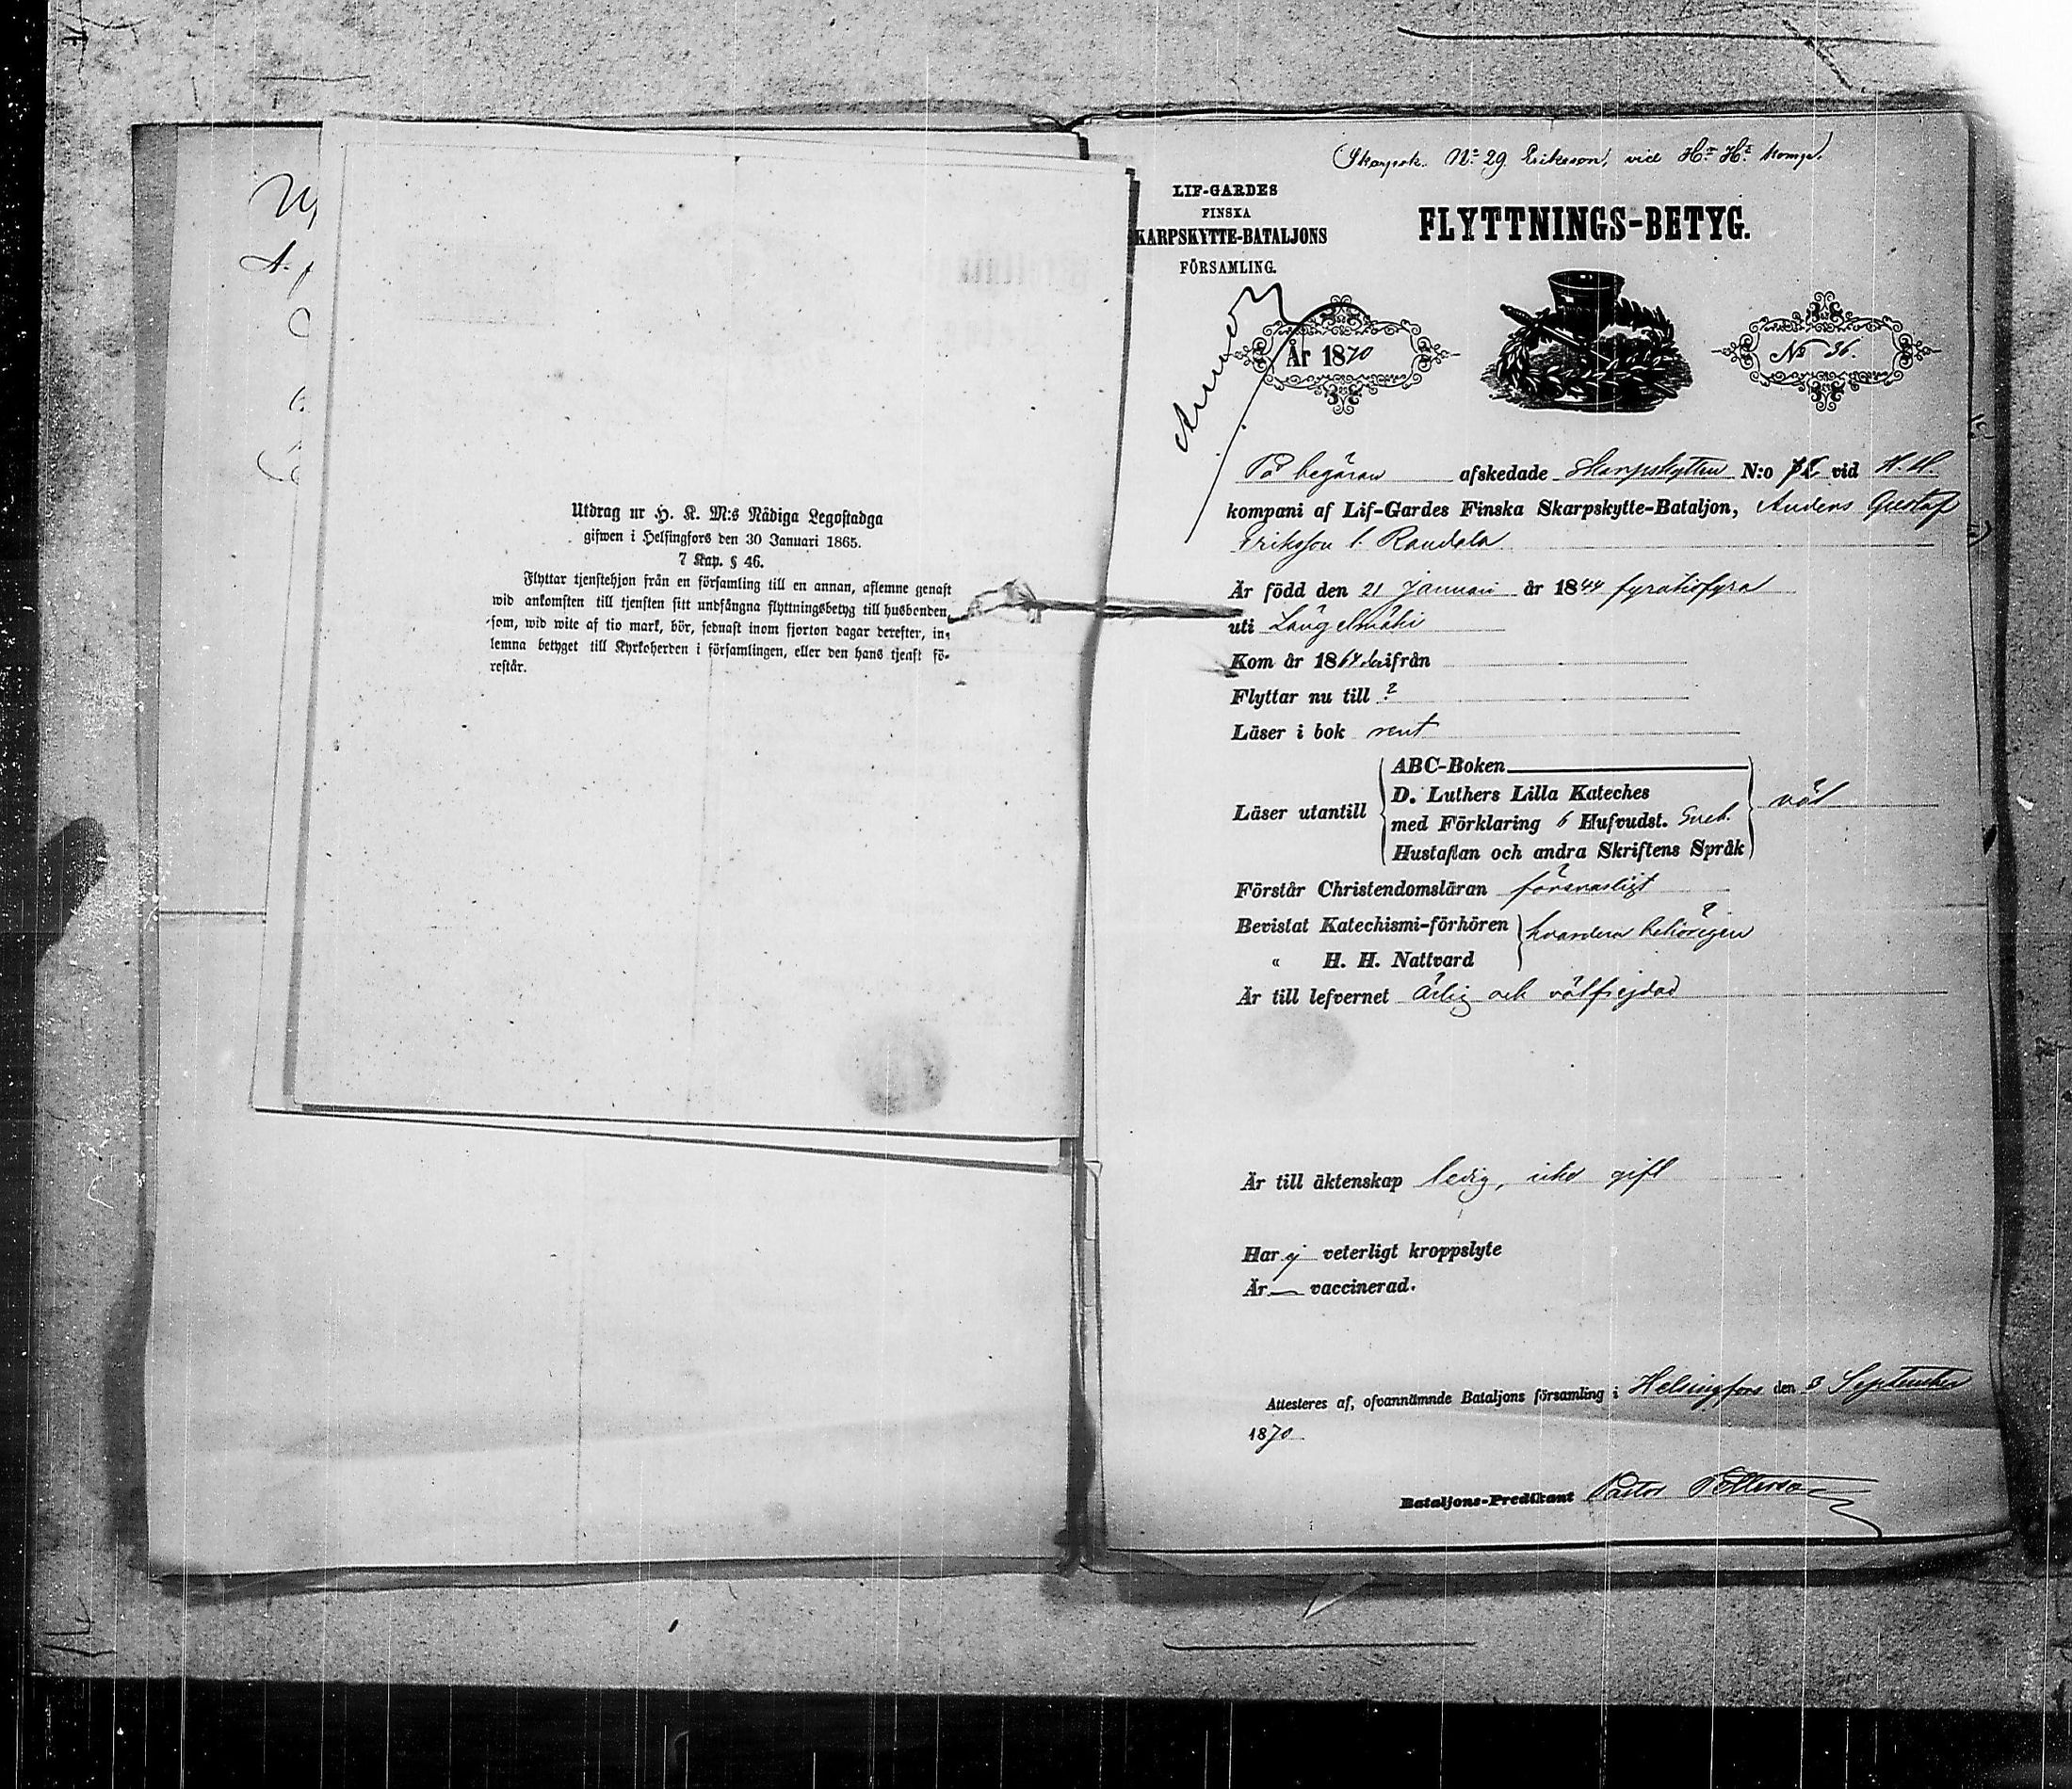 Utdrag ur H. K. M:s Nådiga Legostadga
gifwen i Helsingfors den 30 Januari 1865.
7 Kap. § 46.
Flyttar tjenstehjon från en församling till en annan, aflemne genast
wid ankomsten till tjensten sitt undfångna flyttningsbetyg till husbonden,
som, wid wite af tio mark, bör, sednast inom fjorton dagar derefter, in-
lemna betyget till Kyrkoherden i församlingen, eller den hans tjenst fö-
restår.
Skarpsk. No 29 Eriksson, vid komp.
LIF-GARDES
FINSKA
KARPSKYTTE-BATALJONS
FÖRSAMLING.
FLYTTNINGS-BETYG.
År 1870
No 36.
På begäran afskedade Skarpskytten N:o vid H. H.
kompani af Lif-Gardes Finska Skarpskytte-Bataljon, Anders Gustaf
Eriksson l. Randala
Är född den 21 Januari år 1844 fyratiofyra
uti Längelmäki
Kom år 1864 derifrån
Flyttar nu till ?
Läser i bok rent
Läser utantill
ABC-Boken
D. Luthers Lilla Kateches
med Förklaring 6 Hufvudst. Sveb.
Hustaflan och andra Skriftens Språk
väl
Förstår Christendomsläran försvarligt
Bevistat Katechismi-förhören
hvardera behörigen
« H. H. Nattvard
Är till lefvernet ärlig och välfrejdad
Är till äktenskap ledig, icke gift
Har ej veterligt kroppslyte
Är — vaccinerad.
Attesteras af, ofvannämnde Bataljons församling i Helsingfors den 3 September
1870
Bataljons-Predikant Pastor